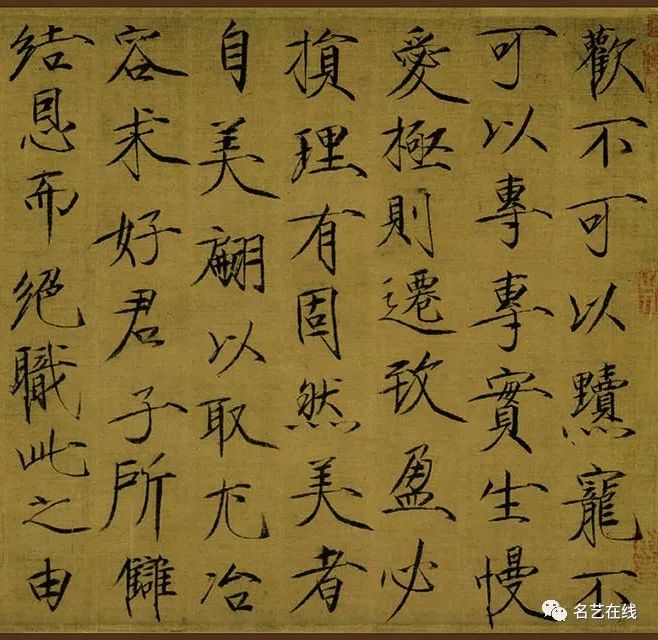 歡不可以黷寵不
可以專專實生慢
愛極則遷致盈必
損理有固然美者
自美翩以取尤冶
容求好君子所讎
結恩而絕職此之由
名艺在线